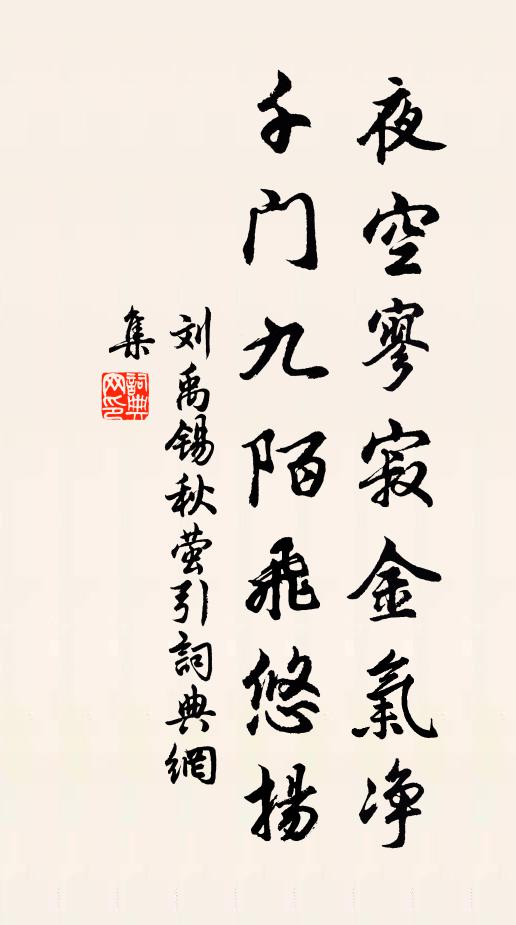 夜空寥寂金氣净
千门九陌飛悠揚
刘禹锡秋萤引詞典網
集
詞典
网印